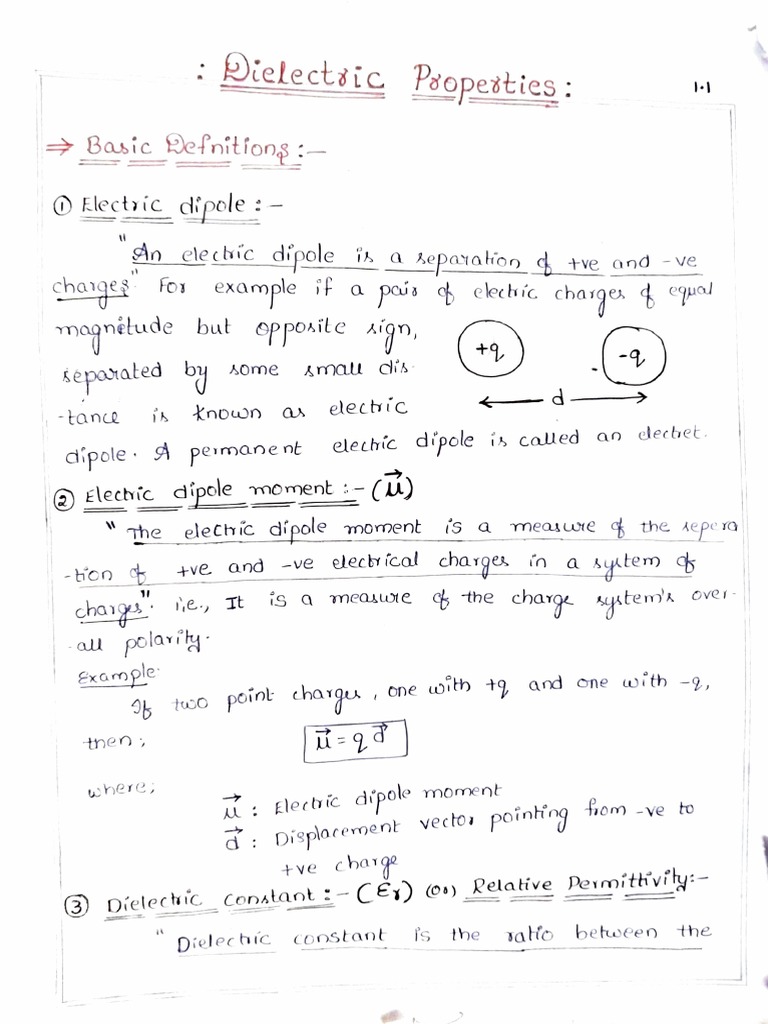 : Dielectric Properties :
1.1
⇒ Basic Defnitions :-
① Electric dipole :-
"An electric dipole is a separation of +ve and -ve
charges" For example if a pair of electric charges of equal
magnitude but opposite sign,
+q
-q
separated by some small dis-
d
-tance is known as electric
dipole. A permanent electric dipole is called an electret.
② Electric dipole moment :- (μ⃗)
"The electric dipole moment is a measure of the sepera
-tion of +ve and -ve electrical charges in a system of
charges". i.e., It is a measure of the charge system's over-
-all polarity.
Example.
If two point charges, one with +q and one with -q,
then;
μ⃗ = q d⃗
where;
μ⃗ : Electric dipole moment
d⃗ : Displacement vector pointing from -ve to
+ve charge
③ Dielectric Constant :- (εr) (or) Relative Permittivity:-
"Dielectric constant is the ratio between the